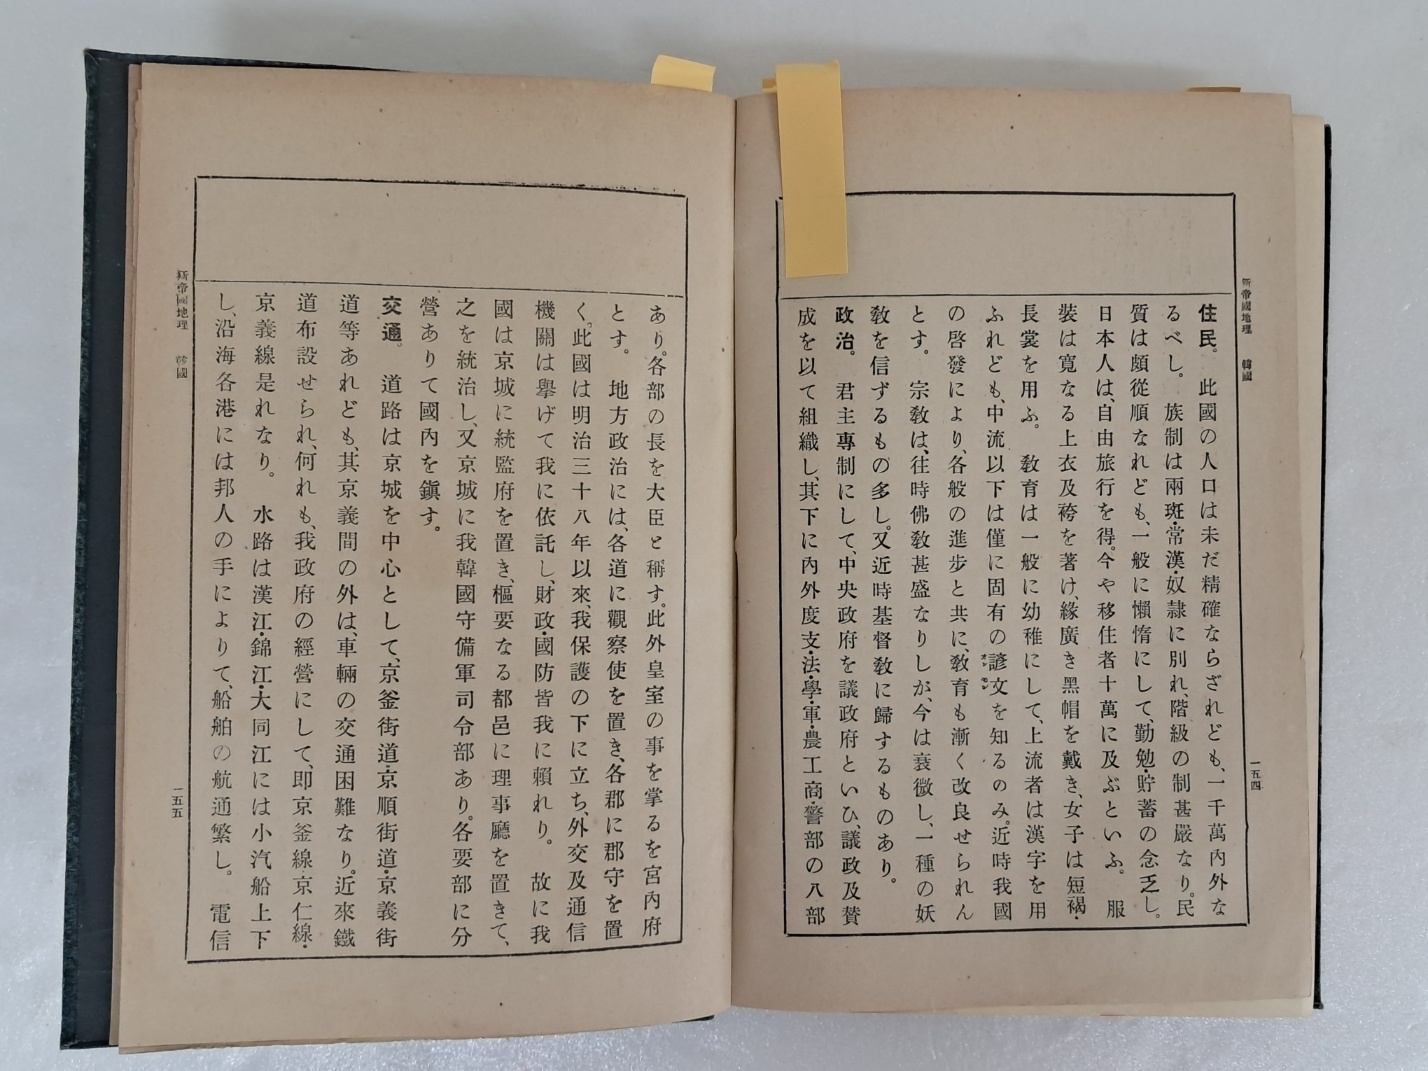 新帝國地理　韓國
一五四
住民。　此國の人口は未だ精確ならざれども、一千萬內外な
るべし。　族制は兩班・常漢・奴隷に別れ、階級の制甚嚴なり。民
質は頗從順なれども、一般に懶惰にして、勤勉・貯蓄の念乏し。
日本人は、自由旅行を得。今や移住者十萬に及ぶといふ。　服
裝は寬なる上衣及袴を著け、緣廣き黑帽を戴き、女子は短褐・
長裳を用ふ。　敎育は一般に幼稚にして、上流者は漢字を用
ふれども、中流以下は僅に固有の諺文を知るのみ。近時我國
の啓發により、各般の進步と共に、敎育も漸く改良せられん
とす。　宗敎は、往時佛敎甚盛なりしが、今は衰微し、一種の妖
敎を信ずるもの多し。又近時基督敎に歸するものあり。
政治。　君主專制にして、中央政府を議政府といひ、議政及賛
成を以て組織し、其下に內外度支・法・學・軍・農工商・警部の八部
あり。各部の長を大臣と稱す。此外皇室の事を掌るを宮內府
とす。　地方政治には、各道に觀察使を置き、各郡に郡守を置
く。此國は明治三十八年以來、我保護の下に立ち、外交及通信
機關は擧げて我に依託し、財政・國防皆我に賴れり。　故に我
國は京城に統監府を置き、樞要なる都邑に理事廳を置きて、
之を統治し、又京城に我韓國守備軍司令部あり。各要部に分
營ありて國內を鎭す。
交通。　道路は京城を中心として、京釜街道・京順街道・京義街
道等あれども、其京義間の外は、車輛の交通困難なり。近來鐵
道布設せられ、何れも、我政府の經營にして、卽京釜線・京仁線・
京義線是れなり。　水路は漢江・錦江・大同江には小汽船上下
し、沿海各港には邦人の手によりて、船舶の航通繁し。　電信
新帝國地理　韓國
一五五